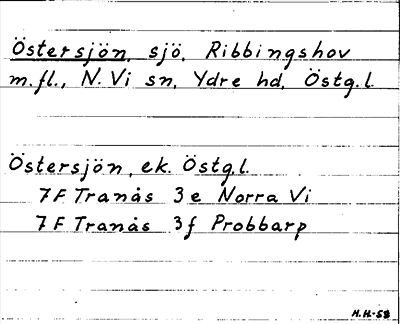 Östersjön, sjö, Ribbingshov
m.fl., N. Vi sn, Ydre hd, Östg.l.
Östersjön, ek. Östg.l.
7F Tranås 3e Norra Vi
7F Tranås 3f Probbarp
H.H-58